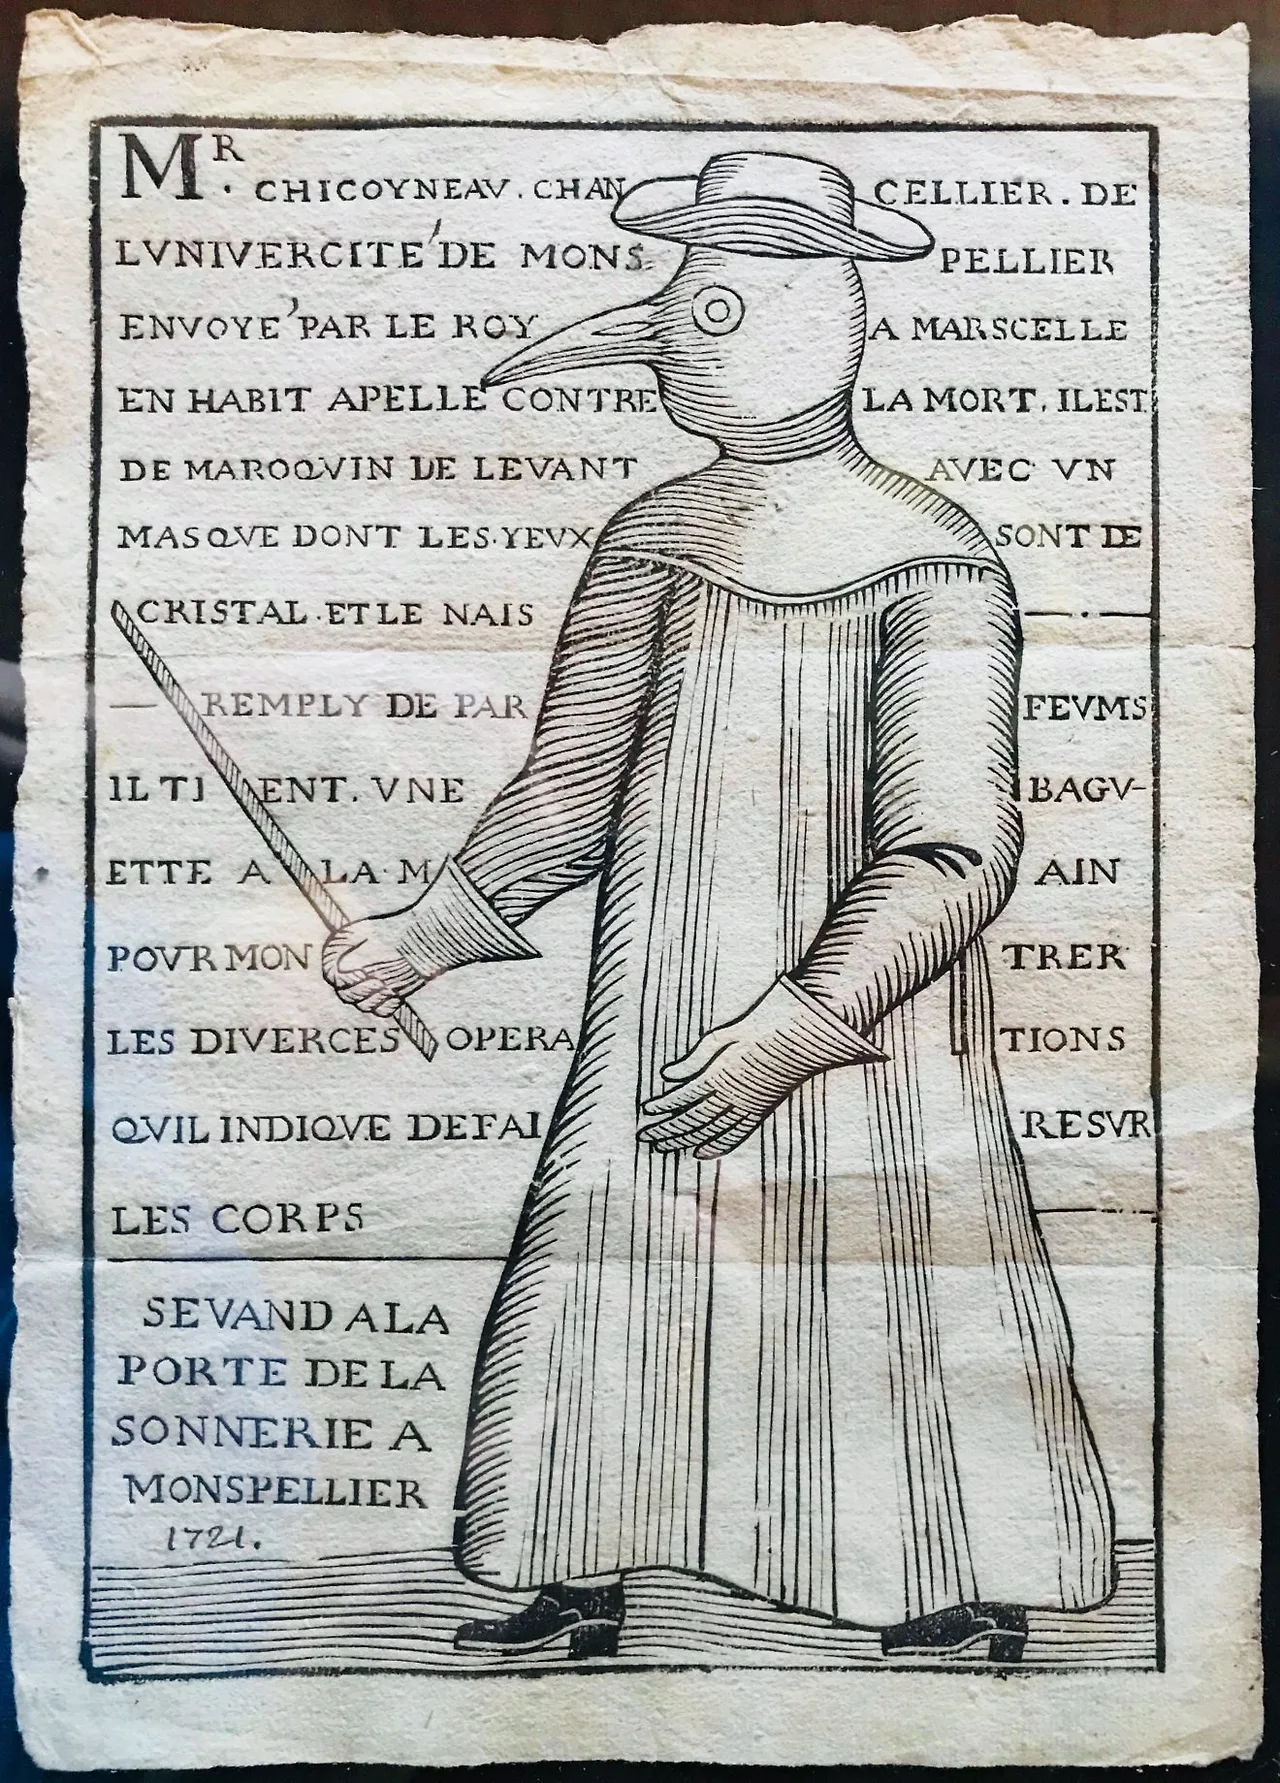 MR. CHICOYNEAV. CHANCELLIER. DE
LVNIVERCITE' DE MONSPELLIER
ENVOYE' PAR LE ROY A MARSCELLE
EN HABIT APELLE' CONTRE LA MORT. IL EST
DE MAROQVIN DE LEVANT AVEC VN
MASQVE DONT LES·YEVX SONT DE
CRISTAL·ET LE NAIS —.—
— REMPLY DE PARFEVMS
IL TIENT. VNE BAGV-
ETTE A LA·MAIN
POVR MONTRER
LES DIVERCES OPERATIONS
QVIL INDIQVE DE FAIRE SVR
LES CORPS
SE VAND A LA
PORTE DE LA
SONNERIE A
MONSPELLIER
1721.